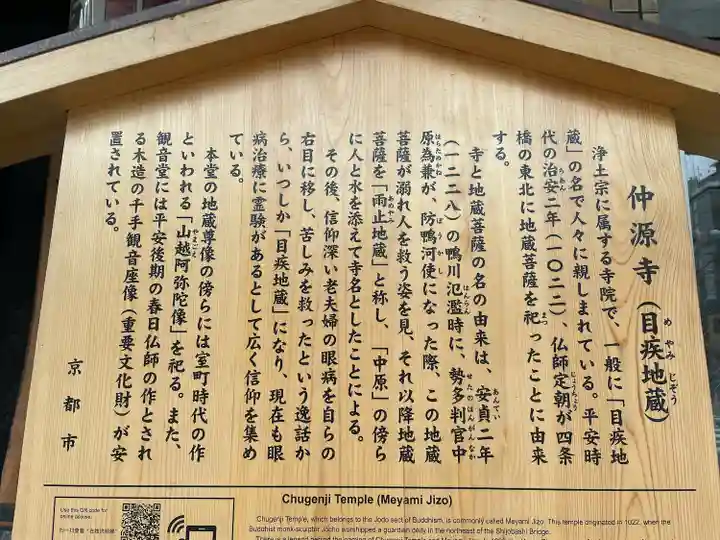 仲源寺（目疾地蔵）
めやみじぞう
浄土宗に属する寺院で、一般に「目疾地
蔵」の名で人々に親しまれている。平安時
代の治安二年（一〇二二）、仏師定朝が四条
じあん
じょうちょう
橋の東北に地蔵菩薩を祀ったことに由来
まつ
する。
寺と地蔵菩薩の名の由来は、安貞二年
あんてい
（一二二八）の鴨川氾濫時に、勢多判官中
はんらん
せたのほんがんなか
原為兼が、防鴨河使になった際、この地蔵
はらためかね
ぼうかし
菩薩が溺れ人を救う姿を見、それ以降地蔵
菩薩を「雨止地蔵」と称し、「中原」の傍ら
あめやみ
に人と水を添えて寺名としたことによる。
その後、信仰深い老夫婦の眼病を自らの
右目に移し、苦しみを救ったという逸話か
ら、いつしか「目疾地蔵」になり、現在も眼
病治療に霊験があるとして広く信仰を集め
ている。
本堂の地蔵尊像の傍らには室町時代の作
といわれる「山越阿弥陀像」を祀る。また、
やまごえ
観音堂には平安後期の春日仏師の作とされ
る木造の千手観音座像（重要文化財）が安
置されている。
京都市
Chugenji Temple (Meyami Jizo)
Chugenji Temple, which belongs to the Jodo sect of Buddhism, is commonly called Meyami Jizo. This temple originated in 1022, when the
Buddhist monk-sculptor Jocho worshipped a guardian deity in the northeast of the Shijobashi Bridge.
Use this QR code for